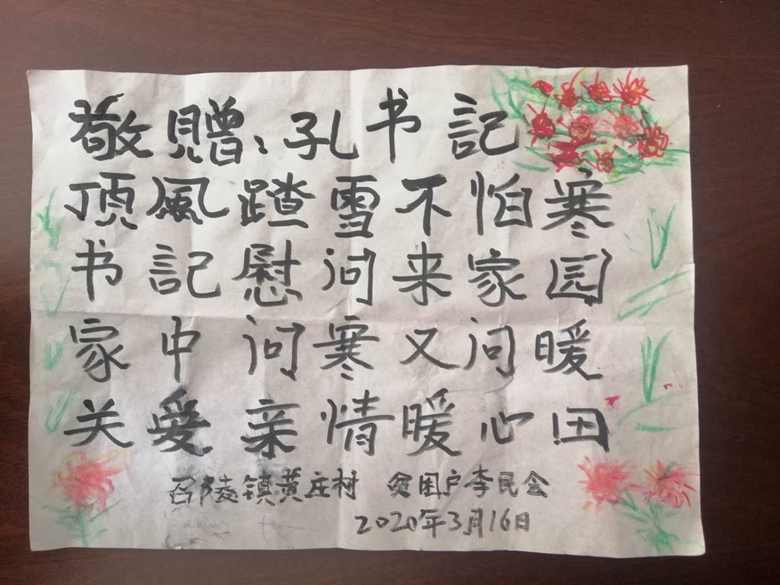 敬贈：孔书記
顶風踏雪不怕寒
书記慰问来家园
家中问寒又问暖
关爱亲情暖心田
召陵镇黄庄村 贫困户李民会
2020年3月16日